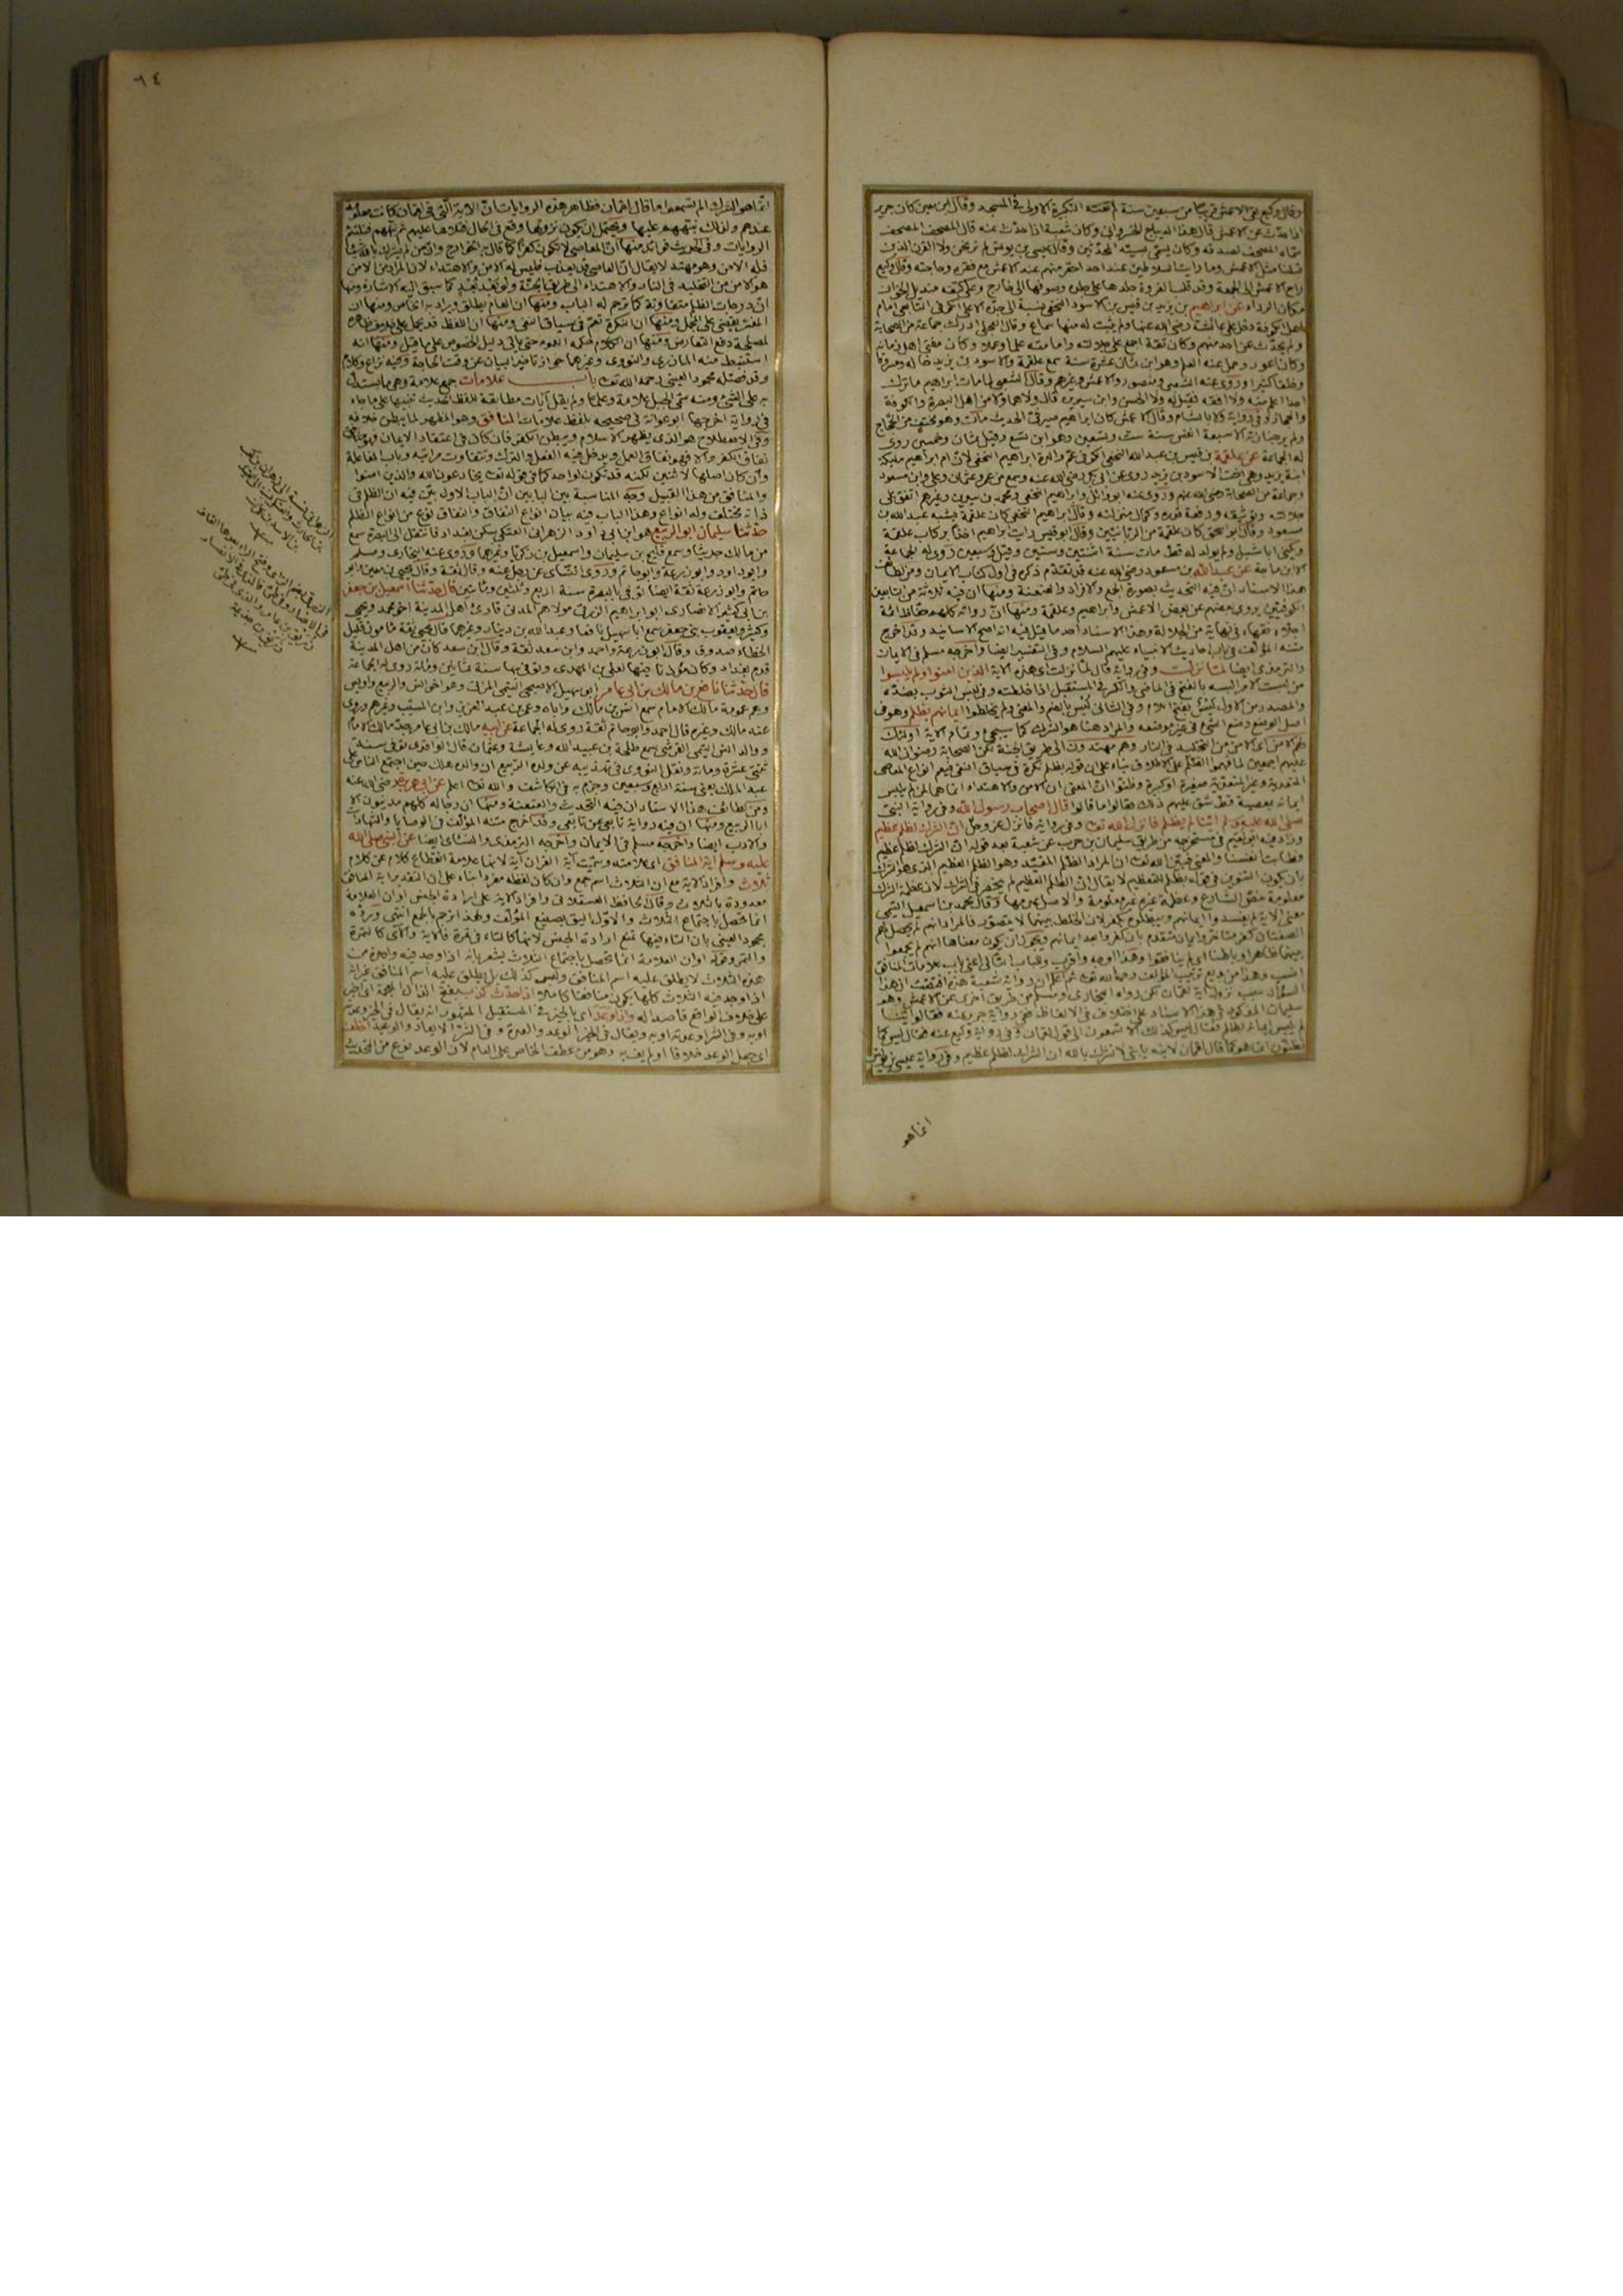 وقال وكيع بقى الاعمش قريبا من سبعين سنة لم تفته التكبيرة الاولى في المسجد وقال ابن معين كان جرير
اذا حدث عن الاعمش قال هذا الديباج الخسرواني وكان شعبة اذا حدث عنه قال المصحف المصحف
سماه المصحف لصدقه وكان يسمى سيد المحدثين وقال عيسى بن يونس لم نر نحن ولا القرن الذين
قبلنا مثل الاعمش وما رايت السلاطين عند احد احقر منهم عند الاعمش مع فقره وحاجته وقال وكيع
راح الاعمش الى الجمعة وقد قلب الفروة جلدها على جلده وصوفها الى خارج وعلى كتفه منديل الخوان
مكان الرداء عن ابراهيم بن يزيد بن قيس بن الاسود النخعي
اهل الكوفة دخل على عائشة رضي الله عنها ولم يثبت له منها سماع وقال العجلي ادرك جماعة من الصحابة
ولم يحدث عن احد منهم وكان ثقة اجمع على جلالته وامامته علما وعملا وكان مفتي اهل زمانه
وكان اعور وحمل عنه العلم وهو ابن ثمان عشرة سنة سمع علقمة والاسود بن يزيد خاله ومسروقا
وخلقا كثيرا وروى عنه الشعبي ومنصور والاعمش وغيرهم وقال الشعبي لما مات ابراهيم ما ترك
احدا اعلم منه ولا افقه فقيل له ولا الحسن وابن سيرين قال ولا هما ولا من اهل البصرة والكوفة
والحجاز وفي رواية ولا بالشام وقال الاعمش كان ابراهيم صيرفي الحديث مات وهو مختف من الحجاج
ولم يحضر جنازته الا سبعة انفس سنة ست وتسعين وهو ابن تسع وقيل ثمان وخمسين روى
له الجماعة عن علقمة بن قيس بن عبد الله النخعي الكوفي عم والدة ابراهيم النخعي لان ام ابراهيم مليكة
ابنة يزيد وهي اخت الاسود بن يزيد روى عن ابي بكر رضي الله عنه وسمع من عمر وعثمان وعلي وابن مسعود
وجماعة من الصحابة رضي الله عنهم وروى عنه ابو وائل وابراهيم النخعي ومحمد بن سيرين وغيرهم اتفق على
جلالته وتوثيقه ووفور علمه وكمال منزلته وقال ابراهيم النخعي كان علقمة يشبه عبد الله بن
مسعود وقال ابو اسحق كان علقمة من الربانيين وقال ابو قيس رايت ابراهيم اخذا بركاب علقمة
ويكنى ابا شبل ولم يولد له قط مات سنة اثنتين وستين وقيل وسبعين روى له الجماعة
الا ابن ماجة عن عبد الله بن مسعود رضي الله عنه قد تقدم ذكره في اول كتاب الايمان ومن لطائف
هذا الاسناد ان فيه التحديث بصورة الجمع والافراد والعنعنة ومنها ان فيه ثلاثة من التابعين
الكوفيين يروي بعضهم عن بعض الاعمش وابراهيم وعلقمة ومنها ان رواته كلهم حفاظ ائمة
اجلاء فقهاء في نهاية من الجلالة وهذا الاسناد احد ما قيل فيه انه اصح الاسانيد وقد اخرج
متنه المؤلف في باب احاديث الانبياء عليهم السلام وفي التفسير ايضا واخرجه مسلم في الايمان
والترمذي ايضا لما نزلت وفي رواية قال لما نزلت اي هذه الآية الذين امنوا ولم يلبسوا
من لبست الامر البسه بالفتح في الماضي والكسر في المستقبل اذا خلطته وفي لبس الثوب بضده
والمصدر من الاول لبس بفتح اللام وفي الثاني لبس بالضم والمعنى ولم يخلطوا ايمانهم بظلم وهو في
اصل الوضع وضع الشيء في غير موضعه والمراد هنا هو الشرك كما سيجيء وتمام الآية اولئك
لهم الامن اي الامن من التخليد في النار وهم مهتدون الى طريق الجنة ظن الصحابة رضوان الله
عليهم اجمعين لما فهموا الظلم على الاطلاق بناء على ان قوله بظلم نكرة في سياق النفي فيعم انواع المعاصي
المتعدية وغير المتعدية صغيرة او كبيرة وظنوا ان المعنى ان الامن والاهتداء انما هي لمن لم يلبس
ايمانه بمعصية قط شق عليهم ذلك فقالوا ما قالوا قال اصحاب رسول الله وفي رواية النبي
صلى الله عليه وسلم اينا لم يظلم فانزل الله تعالى وفي رواية فانزل عز وجل ان الشرك لظلم عظيم
وزاد فيه ابو نعيم في مستخرجه من طريق سليمان بن حرب عن شعبة بعد قوله ان الشرك لظلم عظيم
فطابت انفسنا والمعنى فبين الله تعالى ان المراد الظلم المقيد وهو الظلم العظيم الذي هو الشرك
بان يكون التنوين في قوله بظلم للتعظيم لا يقال ان الظلم العظيم لم ينحصر في الشرك لان عظمة الشرك
معلومة بنص الشارع وعظمة غيره غير معلومة والاصل عدمها وقال محمد بن اسمعيل التيمي
معنى الآية لم يفسدوا ايمانهم ويبطلوه بكفر لان الخلط بينهما لا يتصور فالمراد انهم لم يحصل لهم
الصفتان كفر متأخر وايمان متقدم بان كفروا بعد ايمانهم ويجوز ان يكون معناها انهم لم يجمعوا
بينهما ظاهرا وباطنا اي لم ينافقوا وهذا اوجه واقرب وللباب الثاني اعني باب علامات المنافق
انسب وهذا من بديع ترتيب المؤلف رحمه الله تعالى ثم اعلم ان رواية شعبة هذه اقتضت ان هذا
السؤال سبب نزول آية لقمان لكن رواه البخاري ومسلم من طريق اخرى عن الاعمش وهو
سليمان المذكور في هذا الاسناد على اختلاف في الالفاظ ففي رواية جرير عنه فقالوا اينا
لم يلبس ايمانه بظلم فقال ليس كذلك الا تسمعون الى قول لقمان وفي رواية وكيع عنه فقال ليس كما
تظنون انما هو كما قال لقمان لابنه يا بني لا تشرك بالله ان الشرك لظلم عظيم وفي رواية عيسى بن يونس
انما هو
٦٤
انما هو الشرك الم تسمعوا ما قال لقمان فظاهر هذه الروايات ان الآية التي في لقمان كانت معلومة
عندهم ولذلك نبههم عليها ويحتمل ان يكون نزولها وقع في الحال فتلاها عليهم ثم نبههم فتلتئم
الروايات وفي الحديث فوائد منها ان المعاصي لا تكون كفرا كما قال به الخوارج وان من لم يشرك بالله شيئا
فله الامن وهو مهتد لا يقال ان العاصي قد يعذب فليس له الامن والاهتداء لان المراد من الامن
هو الامن من التخليد في النار والاهتداء الى طريق الجنة كما سبق اليه الاشارة ومنها
ان درجات الظلم متفاوتة كما ترجم له الباب ومنها ان العام يطلق ويراد به الخاص ومنها ان
المفسر يقضي على المجمل ومنها ان النكرة تعم في سياق النفي ومنها ان اللفظ قد يحمل على خلاف ظاهره
لمصلحة دفع التعارض ومنها ان الكلام حكمه العموم حتى يأتي دليل الخصوص على ما قيل ومنها انه
استنبط منه المازري والنووي وغيرهما جواز تاخير البيان عن وقت الحاجة وفيه نزاع وكلام
وقد فصله محمود العيني رحمه الله تعالى باب علامات جمع علامة وهي ما يستدل
به على الشيء ومنه سمي الجبل علامة وعلما ولم يقل آيات مطابقة للفظ الحديث تنبيها على ما جاء
في رواية اخرجها ابو عوانة في صحيحه بلفظ علامات المنافق وهو المظهر لما يبطن خلافه
وفي الاصطلاح هو الذي يظهر الاسلام ويبطن الكفر فان كان في اعتقاد الايمان فهو
نفاق الكفر والا فهو نفاق العمل ويدخل فيه الفعل والترك وتتفاوت مراتبه وباب المفاعلة
وان كان اصلها لاثنين لكنه قد تكون لواحد كما في قوله تعالى يخادعون الله والذين امنوا
والمنافق من هذا القبيل وجه المناسبة بين البابين ان الباب الاول بين فيه ان الظلم في
ذاته مختلف وله انواع وهذا الباب فيه بيان انواع النفاق والنفاق نوع من انواع الظلم
حدثنا سليمان ابو الربيع هو ابن داود الزهراني العتكي سكن بغداد انتقل الى البصرة سمع
من مالك حديثا وسمع فليح بن سليمان واسمعيل بن زكريا وغيرهما وروى عنه البخاري ومسلم
وابو داود وابو زرعة وابو حاتم وروى النسائي عن رجل عنه وقال ثقة وقال يحيى بن معين وابو
حاتم وابو زرعة ثقة ايضا توفي بالبصرة سنة اربع وثلثين ومأتين قال حدثنا اسمعيل بن جعفر
بن ابي كثير الانصاري ابو ابراهيم الزرقي مولاهم المدني قارئ اهل المدينة اخو محمد ويحيى
وكثير ويعقوب بني جعفر سمع ابا سهيل نافعا وعبد الله بن دينار وغيرهما قال يحيى ثقة مامون قليل
الخطاء صدوق وقال ابو زرعة واحمد وابن سعد ثقة وقال ابن سعد كان من اهل المدينة
قدم بغداد وتوفي بها سنة ثمانين ومائة روى له الجماعة
قال حدثنا نافع بن مالك بن ابي عامر ابو سهيل الاصبحي التيمي المدني وهو اخو انس والربيع واويس
وهم عمومة مالك الامام سمع انس بن مالك واباه وعمر بن عبد العزيز وابن المسيب وغيرهم وروى
عنه مالك وغيره قال احمد وابو حاتم ثقة روى له الجماعة عن ابيه مالك بن ابي عامر جد مالك الامام
ووالد انس التيمي القرشي سمع طلحة بن عبيد الله وعائشة وعثمان قال الواقدي توفي سنة
ثنتي عشرة ومائة ونقل النووي في تهذيبه عن ولده الربيع ان والده هلك حين اجتمع الناس على
عبد الملك يعني سنة اربع وسبعين وجزم به في الكاشف والله تعالى اعلم عن ابي هريرة رضي الله عنه
ومن لطائف هذا الاسناد ان فيه التحديث والعنعنة ومنها ان رجاله كلهم مدنيون الا
ابا الربيع ومنها ان فيه رواية تابعي عن تابعي وقد اخرج متنه المؤلف في الوصايا والشهادات
والادب ايضا واخرجه مسلم في الايمان واخرجه الترمذي والنسائي ايضا عن النبي صلى الله
عليه وسلم آية المنافق اي علامته وسميت آية القرآن آية لانها علامة انقطاع كلام عن كلام
ثلاث وافراد الآية مع ان الثلاث اسم جمع وان كان لفظه مفردا بناء على ان التقدير آية المنافق
معدودة بالثلاث وقال الحافظ العسقلاني وافراد الآية على ارادة الجنس او ان العلامة
انما تحصل باجتماع الثلاث والاول اليق بصنيع المؤلف ولهذا ترجم بالجمع انتهى ورده
محمود العيني بان التاء فيها تمنع ارادة الجنس لانها كالتاء في تمرة فالآية والآي كالتمرة
والتمر وقوله او ان العلامة انما تحصل باجتماع الثلاث يشعر بانه اذا وجد فيه واحدة من
هذه الثلاث لا يطلق عليه اسم المنافق وليس كذلك بل يطلق عليه اسم المنافق غير انه
اذا وجد فيه الثلاث كلها يكون منافقا كاملا اذا حدث كذب بفتح الذال المعجمة اي اخبر
على خلاف الواقع قاصدا له واذا وعد اي بالخير في المستقبل المشهور انه يقال في الخير وعدته
او به وفي الشر اوعدته او به ويقال في الخير الوعد والعدة وفي الشر الايعاد والوعيد اخلف
اي جعل الوعد خلافا او لم يف به وهو من عطف الخاص على العام لان الوعد نوع من التحديث